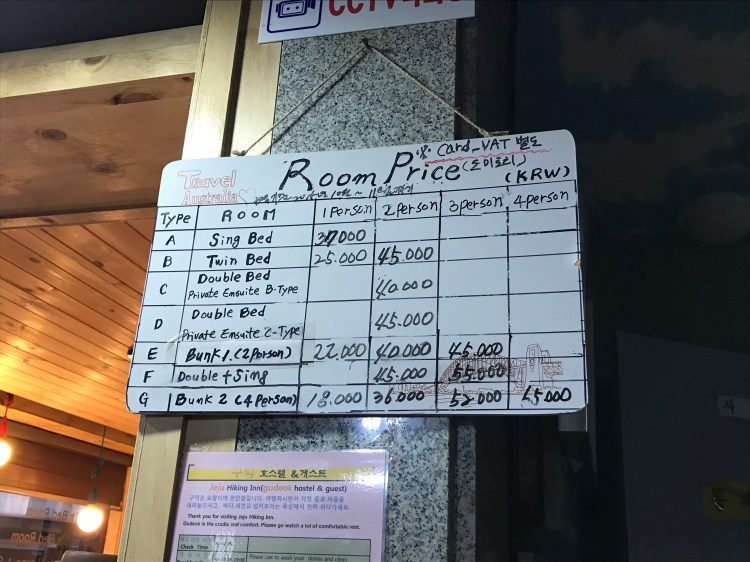 CCTV
※ Card_VAT 별도
Room Price (도미토리)
(KRW)
Travel
Australia
TYPE ROOM 1 Person 2 person 3 person 4 person
A Sing Bed 37000
B Twin Bed 25.000 45.000
C Double Bed
Private Ensuite B-Type 40000
D Double Bed
Private Ensuite C-Type 45.000
E Bunk 1.(2 Person) 22.000 40.000 45.000
F Double + Sing 45.000 55.000
G Bunk 2 (4 Person) 18.000 36.000 52.000 65.000
호스텔 &게스트
Jeju Hiking Inn(gudeok hostel & guest)
Thank you for visiting Jeju Hiking Inn.
Gudeok is the cradle and comfort. Please go watch a lot of comfortable rest.
Check Time
Please use to wash your dishes and clean